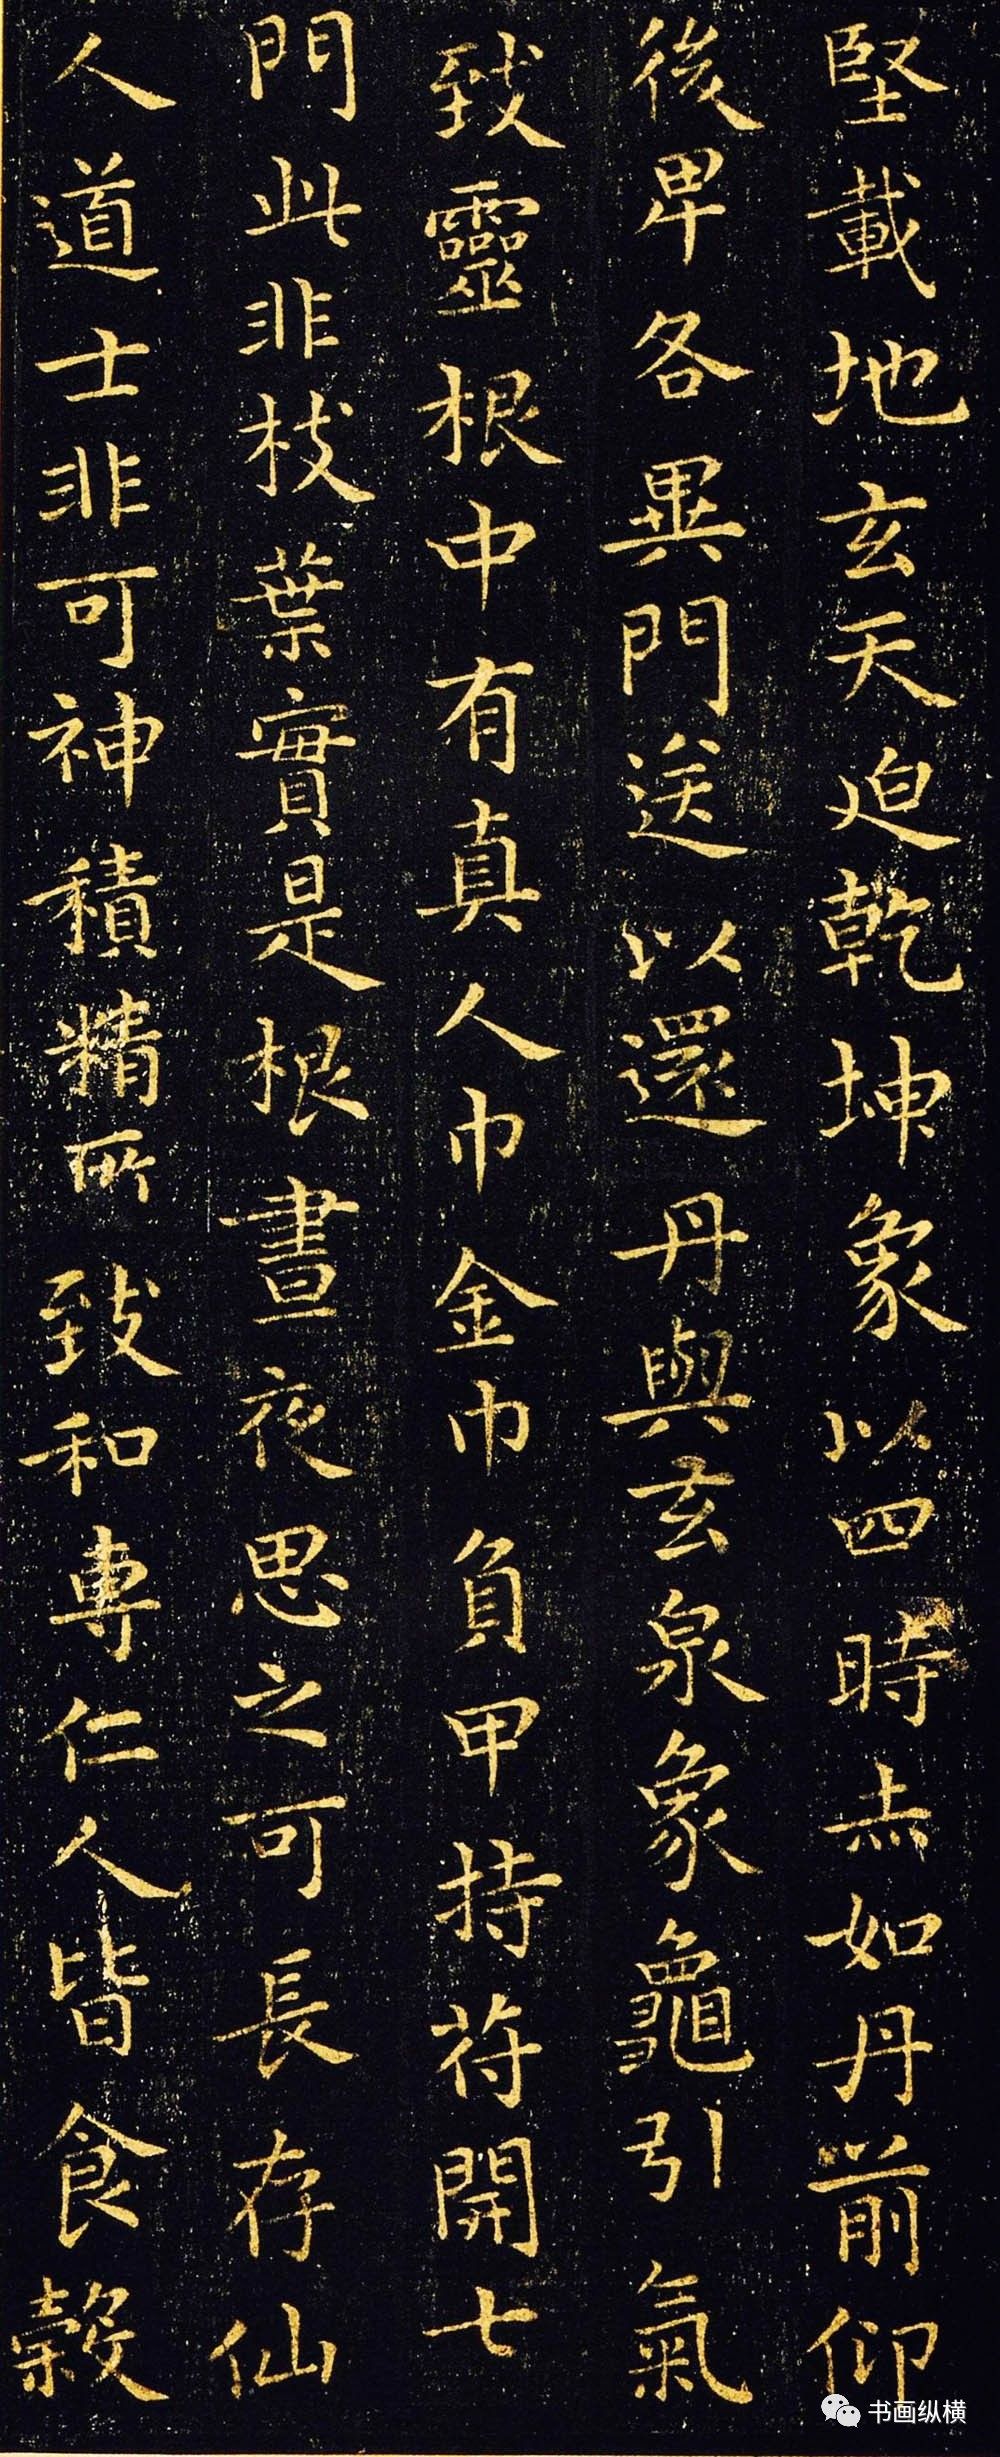 堅載地玄天迫乾坤象以四時赤如丹前仰
後卑各異門送以還丹與玄泉象龜引氣
致靈根中有真人巾金巾負甲持符開七
門此非枝葉實是根晝夜思之可長存仙
人道士非可神積精所致和專仁人皆食穀
书画纵横